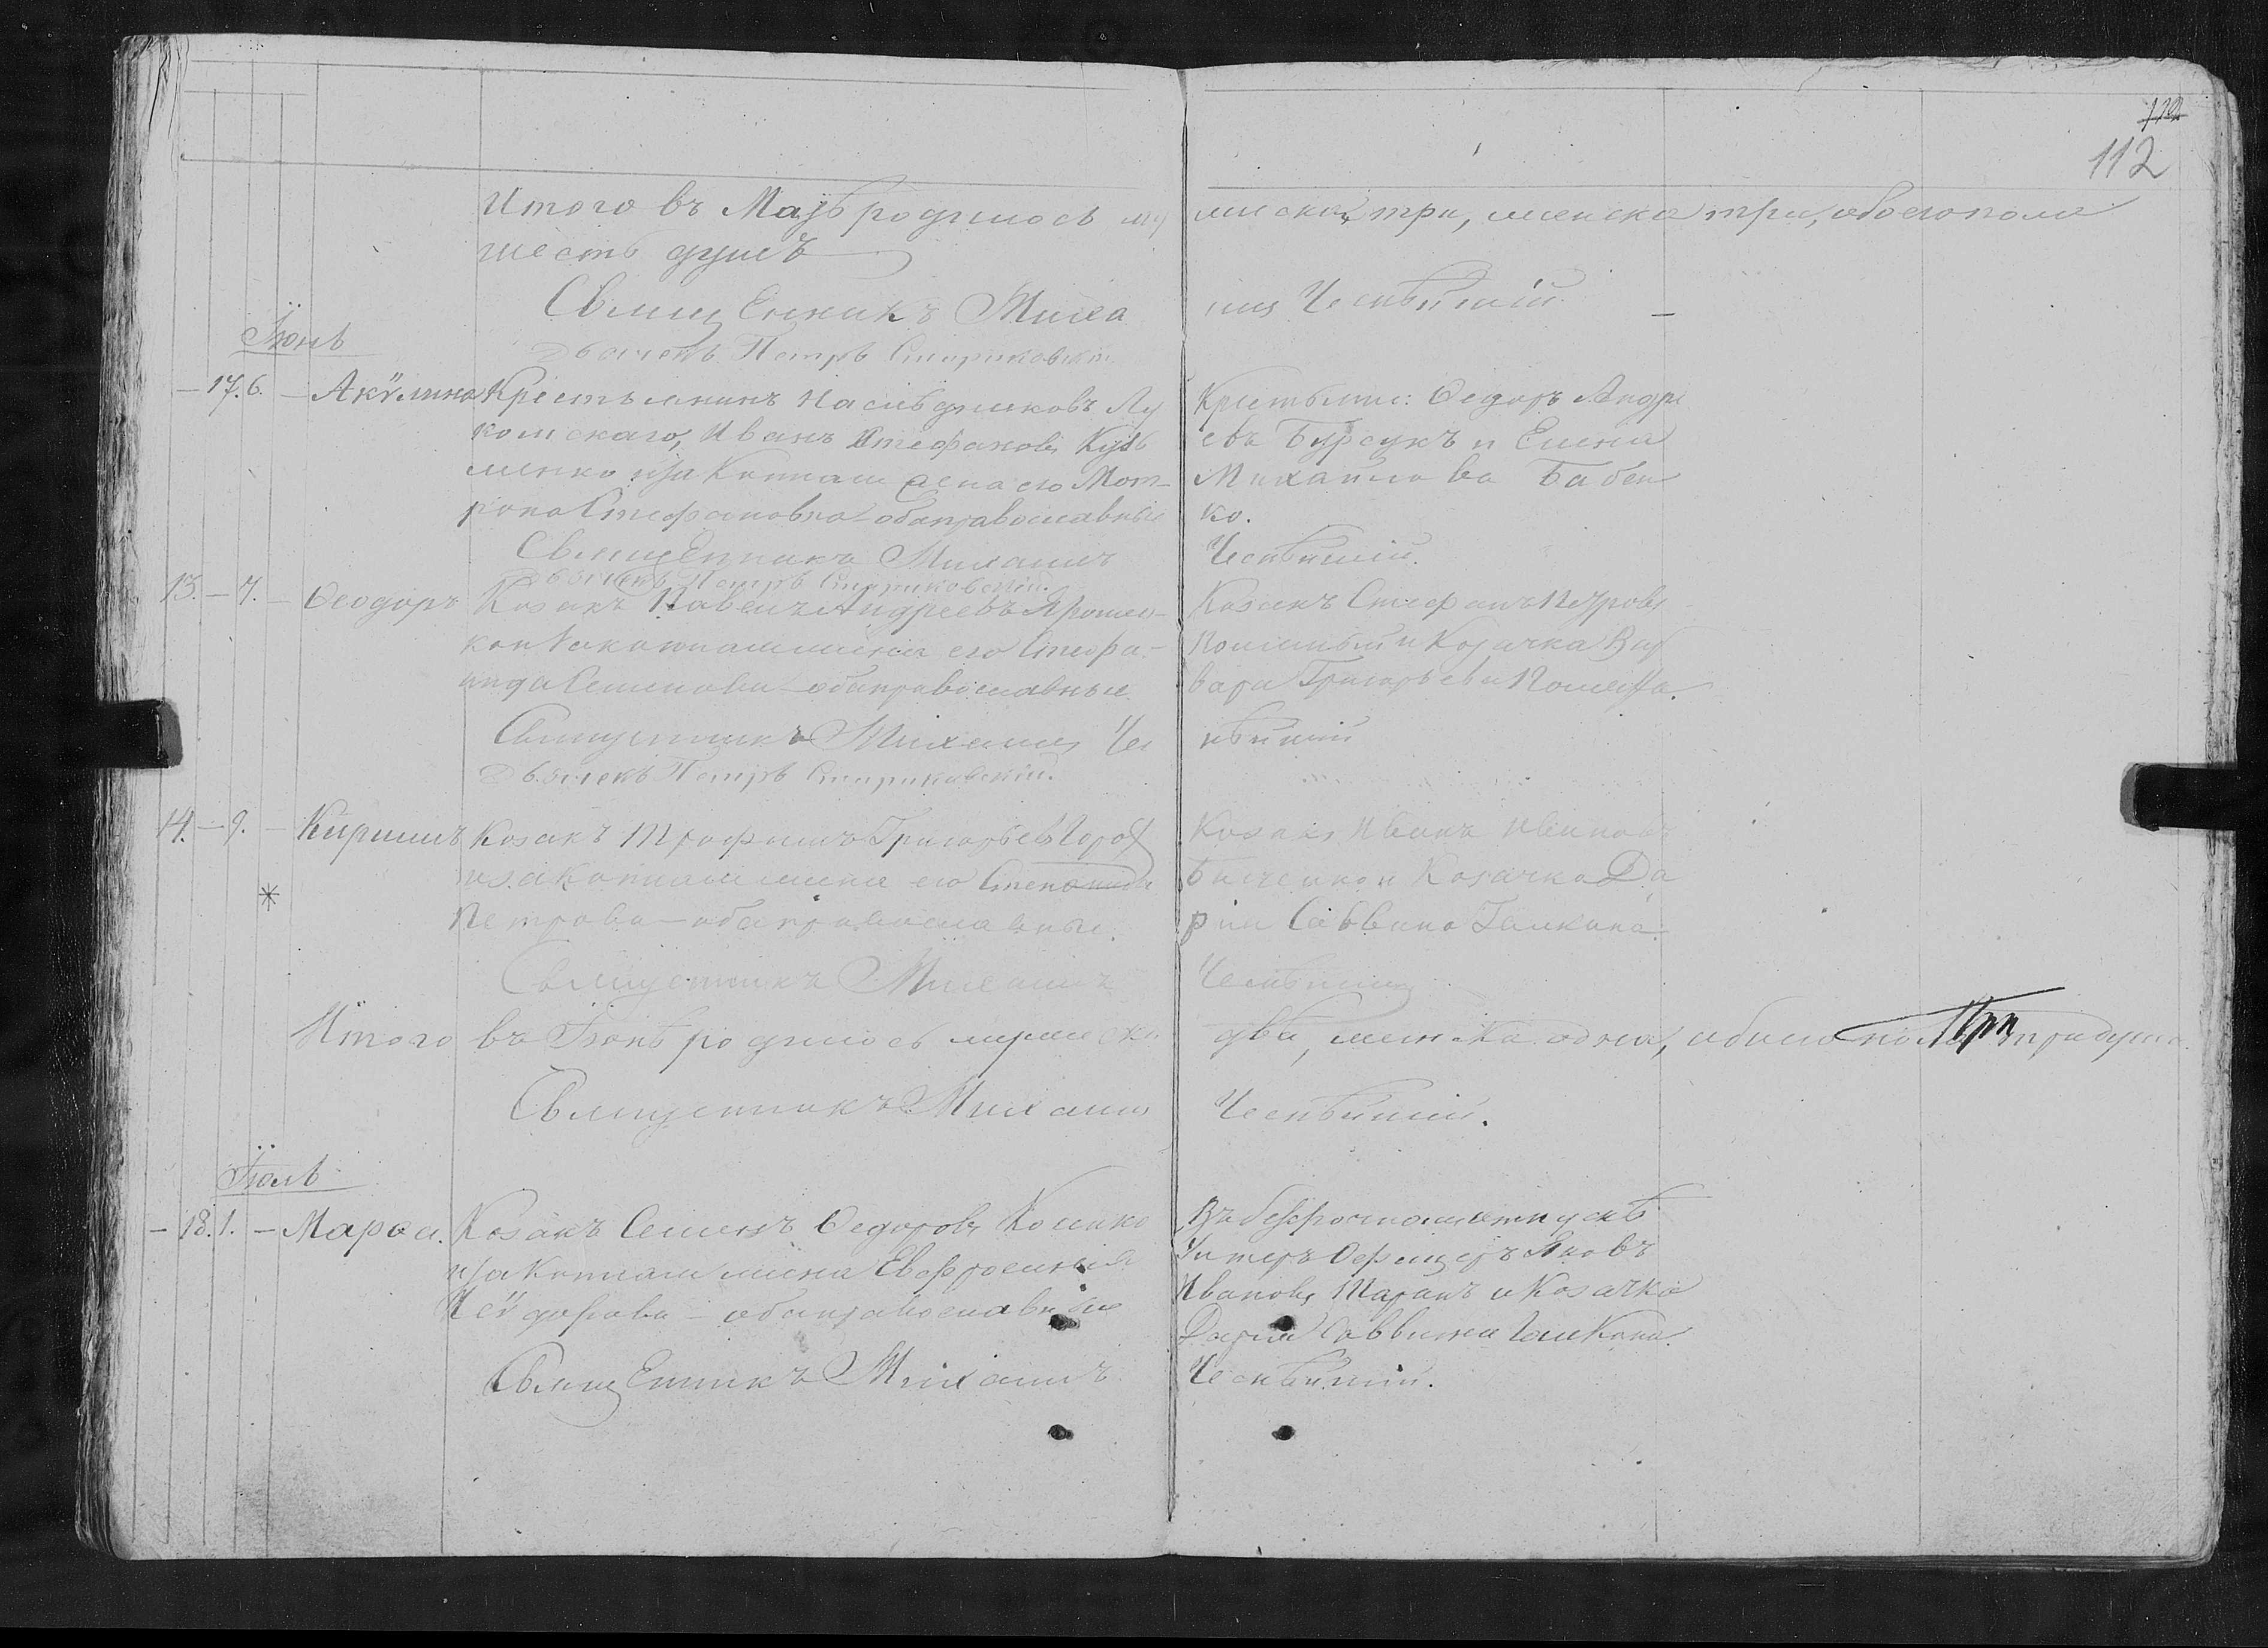 112
Итого въ Маѣ родилось му
шеска три, женска три, обоего пола
шесть душъ
Священникъ Миха
илъ Чеснѣйшій
Дьячекъ Петръ Стариковскій
Іюнь
17. 6. Акулина Крестьянинъ Наслѣдниковъ Лу
комскаго, Иванъ Стефановъ Кузь
менко и законная жена его Мот-
рона Стефановна оба православные
Крестьяне: Ѳедоръ Андре
евъ Бурсукъ и Елена
Михайлова Бабен
ко.
Священникъ Михаилъ
Чеснѣйшій.
Дьячекъ Петръ Стариковскій.
13. 7. Ѳеодоръ Козакъ Павелъ Андреевъ Ярошен-
ко и законная жена его Стефа-
нида Семенова оба православные
Козакъ Стефанъ Петровъ
и Козачка Вар
вара Григорьева
Священникъ Михаилъ Чес
нѣйшій
Дьячекъ Петръ Стариковскій.
14. 9. Кирилъ Козакъ Трофимъ Григорьевъ
и законная жена его Степанида
Петрова оба православные.
Козакъ Иванъ Ивановъ
и Козачка Да
рія Саввина Галкина
Священникъ Михаилъ
Чеснѣйшій
Итого въ Іюнѣ родилось мужеска
два, женска одна, обоего пола три три души.
Священникъ Михаилъ
Чеснѣйшій.
Іюль
18. 1. Марѳа. Козакъ Семенъ Ѳедоровъ
и законная жена Евфросинія
оба православные
Въ безсрочномъ отпускѣ
Унтеръ Офицеръ Яковъ
Ивановъ Таранъ и Козачка
Дарія Саввина Галкина.
Священникъ Михаилъ
Чеснѣйшій.